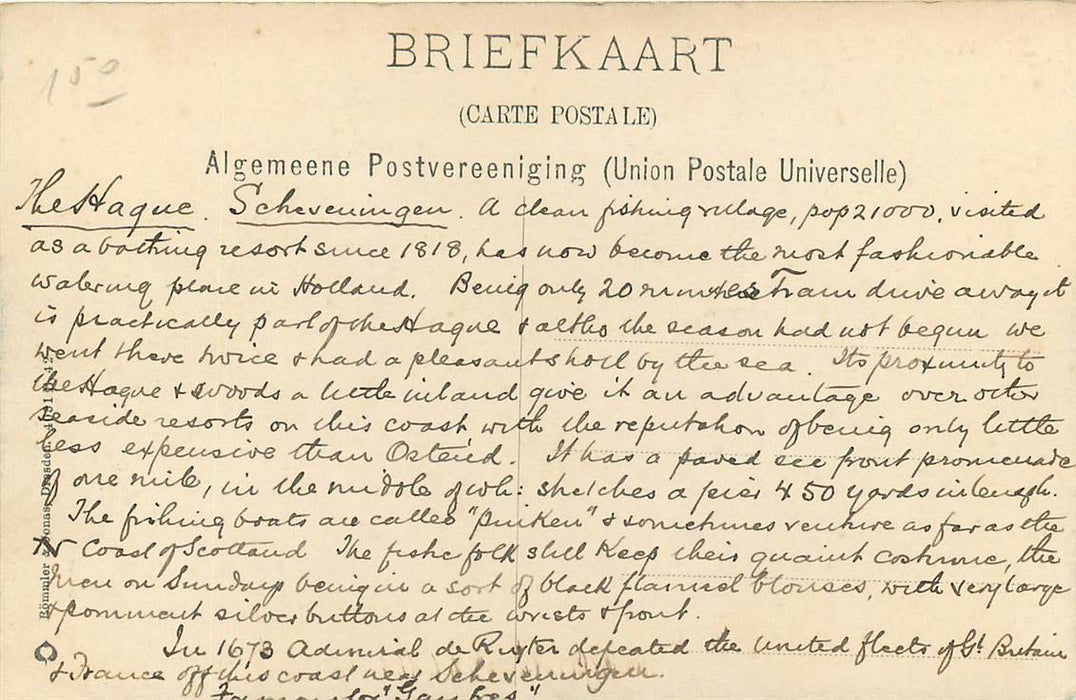 150
BRIEFKAART
(CARTE POSTALE)
Algemeene Postvereeniging (Union Postale Universelle)
The Hague. Scheveningen. A clean fishing village, pop 21000, visited
as a bathing resort since 1818, has now become the most fashionable
watering place in Holland. Being only 20 minutes Tram drive away it
is practically part of the Hague & altho the season had not begun we
went there twice & had a pleasant stroll by the sea. Its proximity to
the Hague & woods a little inland give it an advantage over other
seaside resorts on this coast with the reputation of being only little
less expensive than Ostend. It has a paved sea front promenade
of one mile, in the middle of wh: stretches a pier 450 yards in length.
The fishing boats are called "pinken" & sometimes venture as far as the
N Coast of Scotland The fisher folk still keep their quaint costume, the
men on Sundays being in a sort of black flannel blouses, with very large
& prominent silver buttons at the wrists & front.
In 1673 Admiral de Ruyter defeated the united fleets of Gt Britain
& France off this coast near Scheveningen.
Famous for
Römmler & Jonas, Dresden.